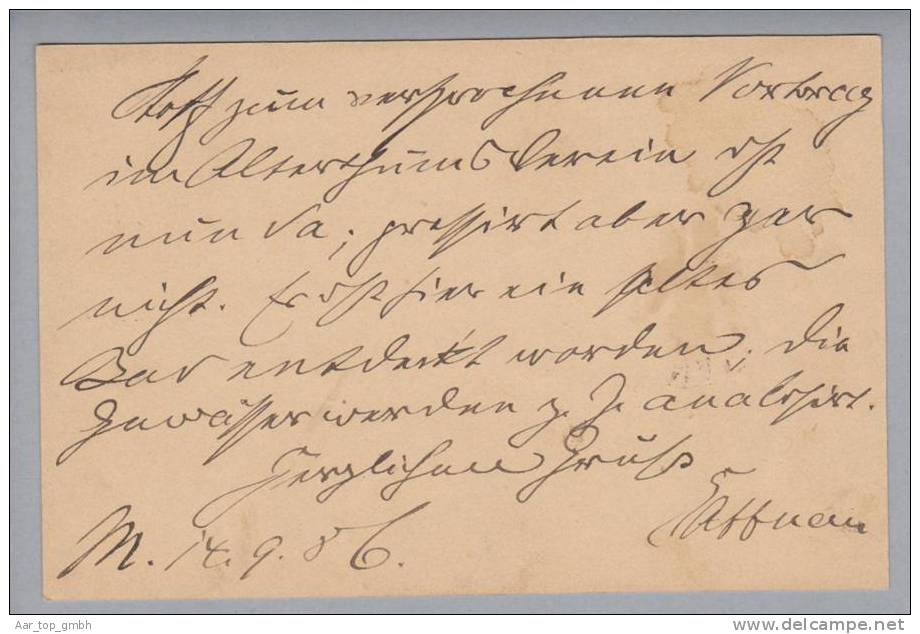 Stoff zum versprochenen Vortrag
im Alterthumsverein ist
nun da; pressirt aber gar
nicht. Es ist hier ein altes
Bad entdeckt worden; die
Gewässer werden z. Z. analysirt.
Herzlichen Gruß
M. 14. 9. 86.
Aar_top_gmbh
www.delcampe.net